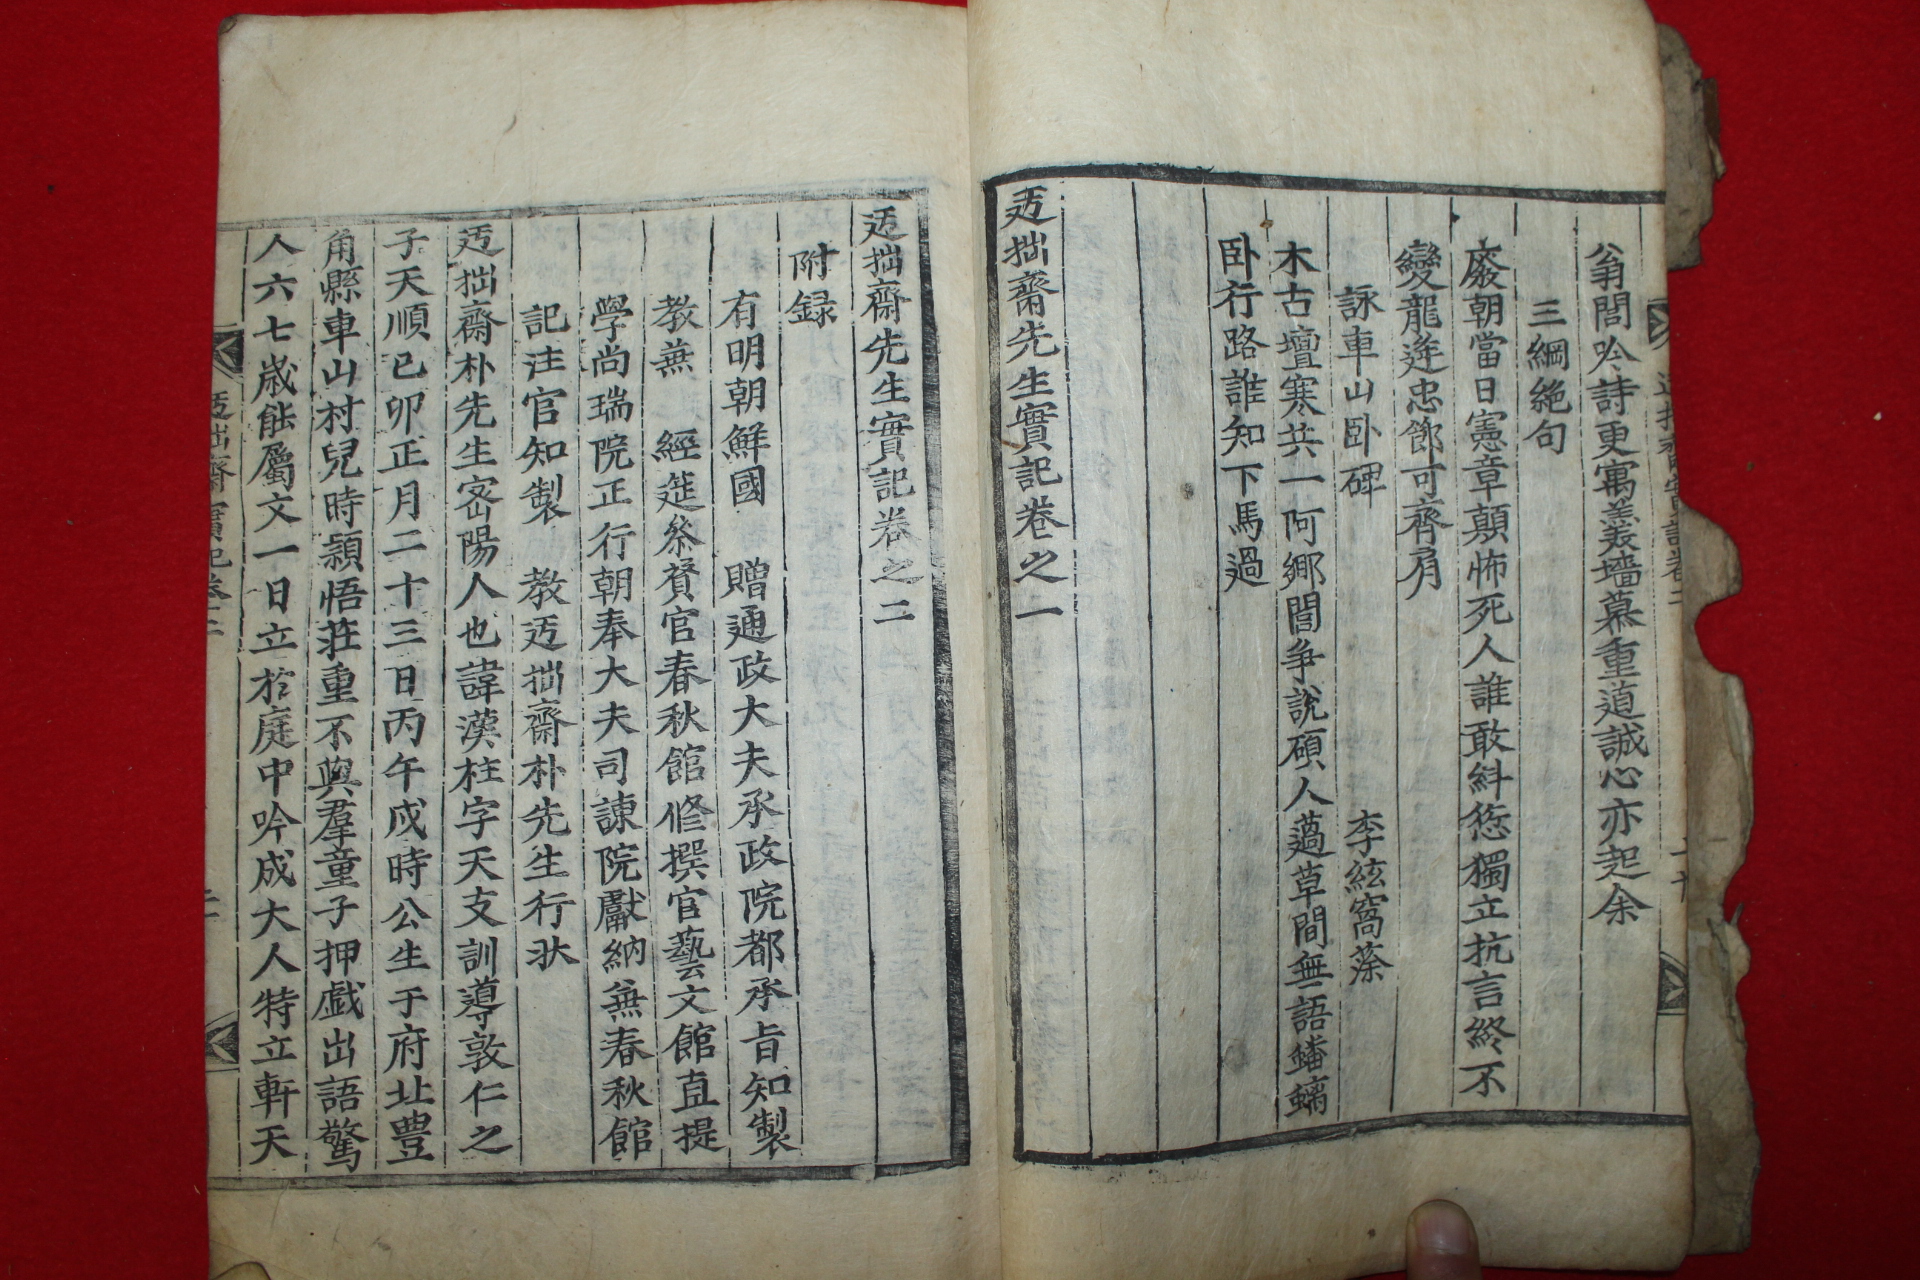 翁閭吟詩更寓羹墻慕重道誠心亦起余
三綱絶句
廢朝當日憲章顛怖死人誰敢糾愆獨立抗言終不
變龍逄忠節可齊肩
詠車山卧碑
李絃窩藻
木古壇寒共一阿鄕閭爭說碩人薖草間無語蟠螭
卧行路誰知下馬過
迃拙齋先生實記卷之一
迃拙齋先生實記卷之二
附録
有明朝鮮國 贈通政大夫承政院都承旨知製
教兼 經筵叅贊官春秋館修撰官藝文館直提
學尚瑞院正行朝奉大夫司諫院獻納兼春秋館
記注官知製 教迃拙齋朴先生行狀
迃拙齋朴先生密陽人也諱漢柱字天支訓導敦仁之
子天順己卯正月二十三日丙午戌時公生于府北豊
角縣車山村兒時穎悟莊重不與羣童子押戲出語驚
人六七歲能屬文一日立於庭中吟成大人特立軒天
迃拙齋實記卷二
二